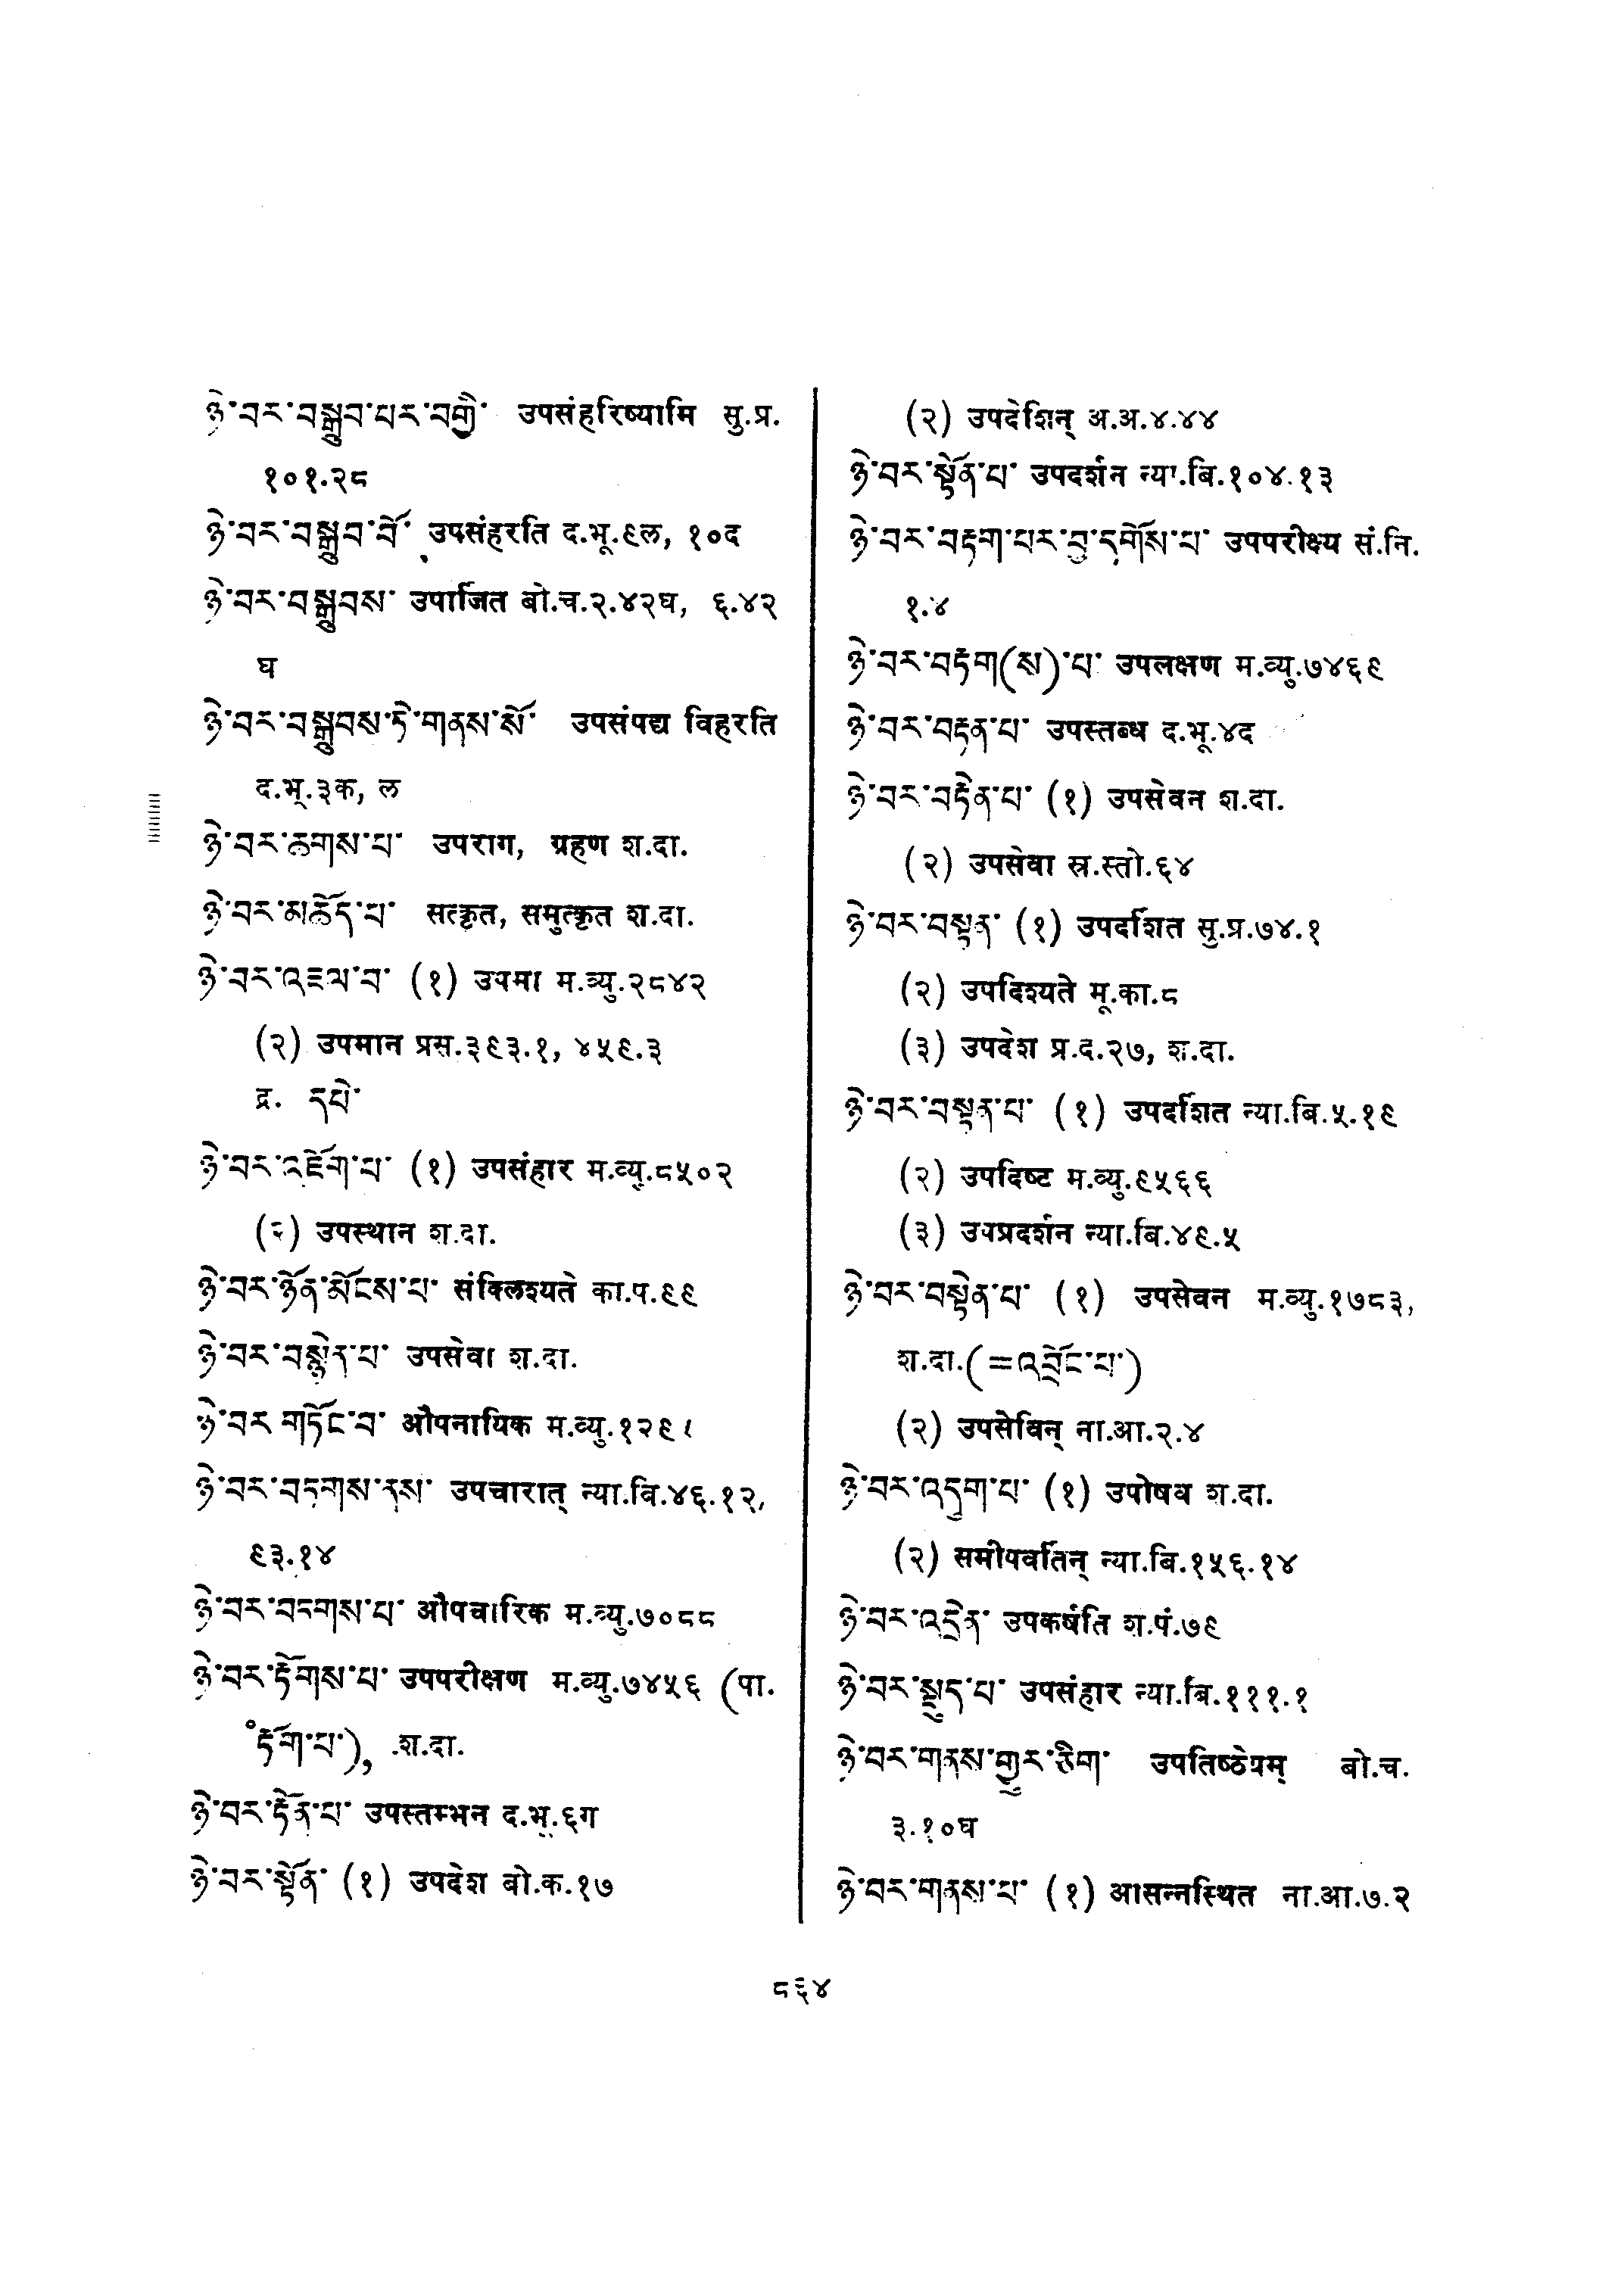 ཉེ་བར་བསྒྲུབ་པར་བགྱི་ उपसंहरिष्यामि सु.प्र.
१०१.२८
ཉེ་བར་བསྒྲུབ་བོ་ उपसंहरति द.भू.९ल, १०द
ཉེ་བར་བསྒྲུབས་ उपार्जित बो.च.२.४२घ, ६.४२
घ
ཉེ་བར་བསྒྲུབས་ཏེ་གནས་སོ་ उपसंपद्य विहरति
द.भू.३क, ल
ཉེ་བར་ཆགས་པ་ उपराग, ग्रहण श.दा.
ཉེ་བར་མཆོད་པ་ सत्कृत, समुत्कृत श.दा.
ཉེ་བར་འཇལ་བ་ (१) उपमा म.व्यु.२८४२
(२) उपमान प्रस.३९३.१, ४५९.३
द्र. དཔེ་
ཉེ་བར་འཇོག་པ་ (१) उपसंहार म.व्यु.८५०२
(२) उपस्थान श.दा.
ཉེ་བར་ཉོན་མོངས་པ་ संक्लिश्यते का.प.९९
ཉེ་བར་བསྙེན་པ་ उपसेवा श.दा.
ཉེ་བར་གཏོང་བ་ औपनायिक म.व्यु.
ཉེ་བར་བཏགས་ནས་ उपचारात् न्या.बि.४६.१२,
९३.१४
ཉེ་བར་བཏགས་པ་ औपचारिक म.व्यु.७०८८
ཉེ་བར་རྟོགས་པ་ उपपरीक्षण म.व्यु.७४५६ (पा.
॰རྟོག་པ་), श.दा.
ཉེ་བར་རྟོན་པ་ उपस्तम्भन द.भू.६ग
ཉེ་བར་སྟོན་ (१) उपदेश बो.क.१७
(२) उपदेशिन् अ.अ.४.४४
ཉེ་བར་སྟོན་པ་ उपदर्शन न्या.बि.१०४.१३
ཉེ་བར་བརྟག་པར་བྱ་དགོས་པ་ उपपरीक्ष्य सं.नि.
१.४
ཉེ་བར་བརྟག(ས)་པ་ उपलक्षण म.व्यु.७४६९
ཉེ་བར་བརྟན་པ་ उपस्तब्ध द.भू.४द
ཉེ་བར་བརྟེན་པ་ (१) उपसेवन श.दा.
(२) उपसेवा स्र.स्तो.६४
ཉེ་བར་བསྟན་ (१) उपदर्शित सु.प्र.७४.१
(२) उपदिश्यते मू.का.८
(३) उपदेश प्र.द.२७, श.दा.
ཉེ་བར་བསྟན་པ་ (१) उपदर्शित न्या.बि.५.१९
(२) उपदिष्ट म.व्यु.९५६६
(३) उपप्रदर्शन न्या.बि.४९.५
ཉེ་བར་བསྟེན་པ་ (१) उपसेवन म.व्यु.१७८३,
श.दा.(=འབྲོང་པ་)
(२) उपसेविन् ना.आ.२.४
ཉེ་བར་འདུག་པ་ (१) उपोषध श.दा.
(२) समीपवर्तिन् न्या.बि.१५६.१४
ཉེ་བར་འདྲེན་ उपकर्षति श.पं.७९
ཉེ་བར་སྡུད་པ་ उपसंहार न्या.बि.१११.१
ཉེ་བར་གནས་གྱུར་ཅིག་ उपतिष्ठेयम् बो.च.
३.१०घ
ཉེ་བར་གནས་པ་ (१) आसन्नस्थित ना.आ.७.२
८६४